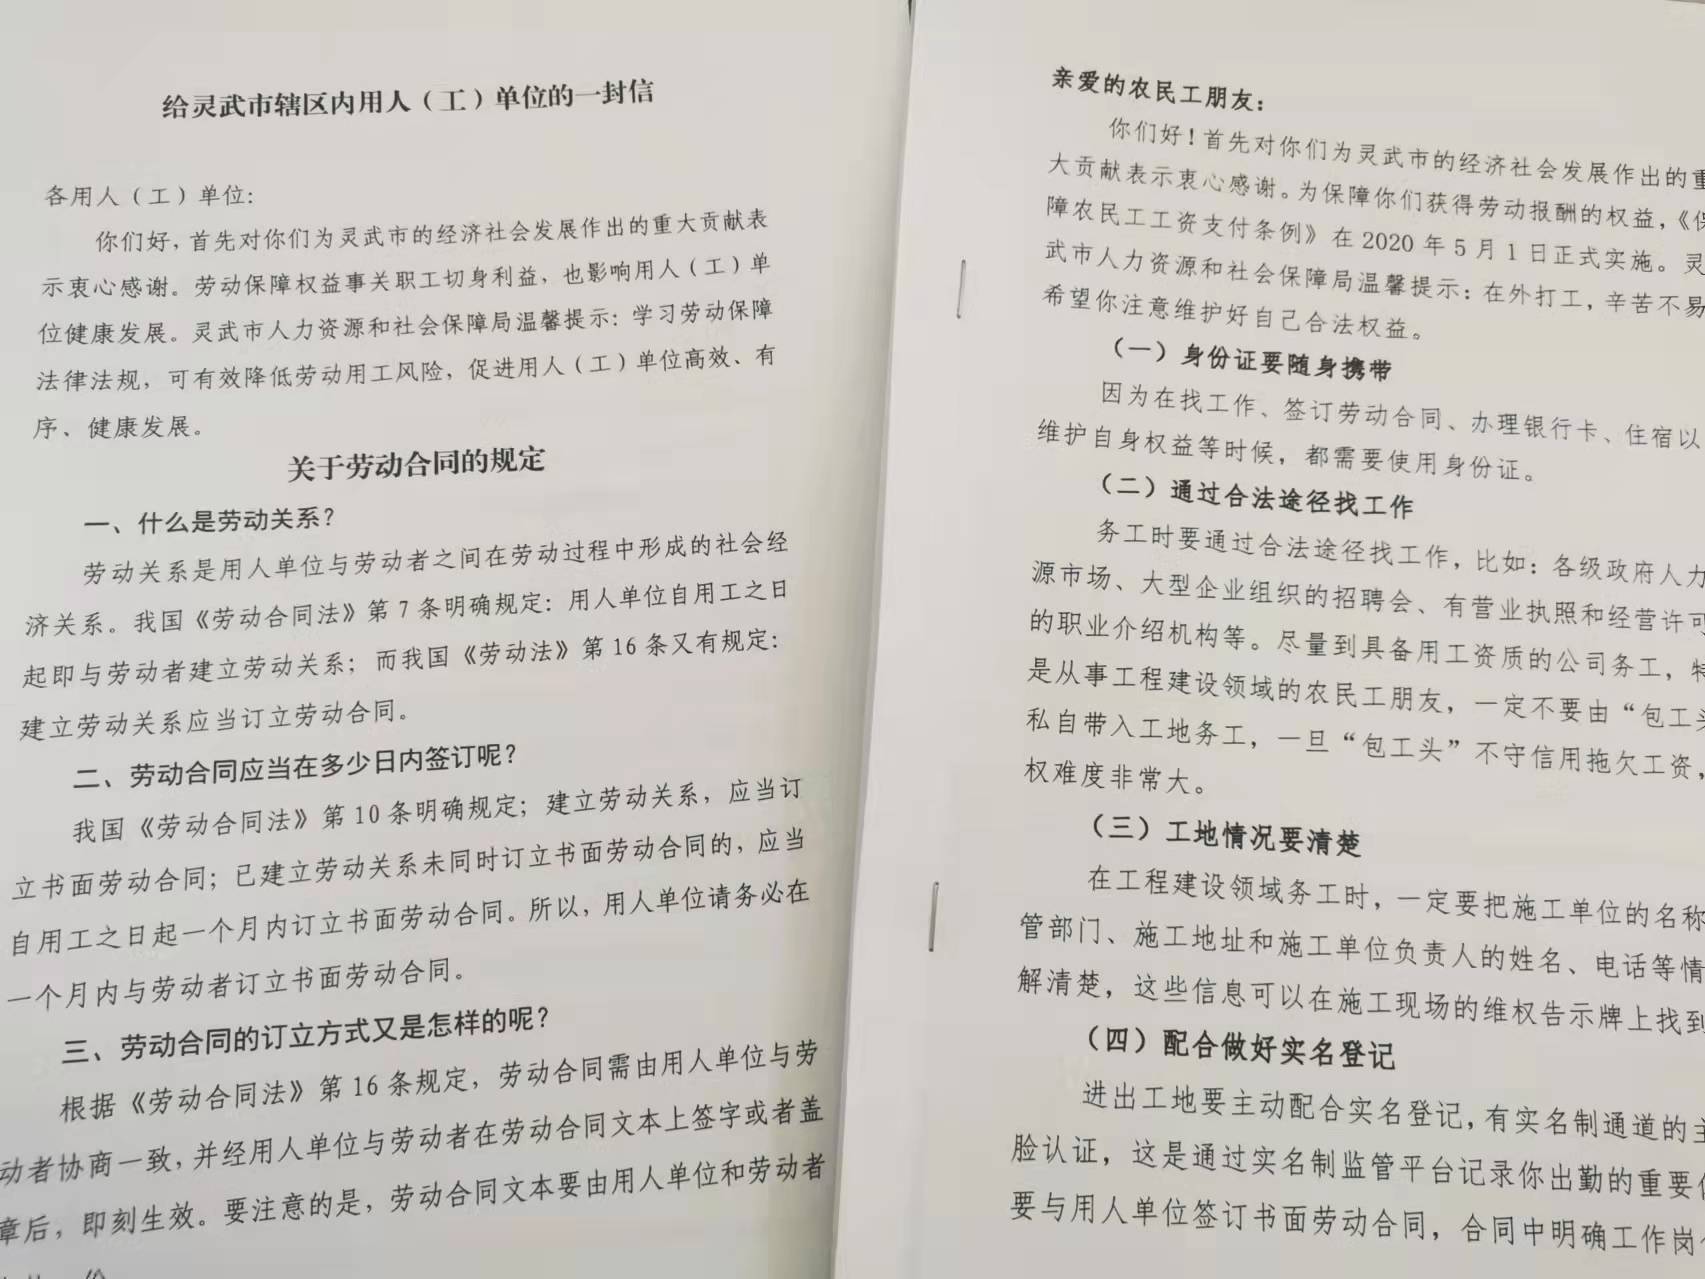 给灵武市辖区内用人（工）单位的一封信
各用人（工）单位：
你们好，首先对你们为灵武市的经济社会发展作出的重大贡献表
示衷心感谢。劳动保障权益事关职工切身利益，也影响用人（工）单
位健康发展。灵武市人力资源和社会保障局温馨提示：学习劳动保障
法律法规，可有效降低劳动用工风险，促进用人（工）单位高效、有
序、健康发展。
关于劳动合同的规定
一、什么是劳动关系？
劳动关系是用人单位与劳动者之间在劳动过程中形成的社会经
济关系。我国《劳动合同法》第 7 条明确规定：用人单位自用工之日
起即与劳动者建立劳动关系；而我国《劳动法》第 16 条又有规定：
建立劳动关系应当订立劳动合同。
二、劳动合同应当在多少日内签订呢？
我国《劳动合同法》第 10 条明确规定；建立劳动关系，应当订
立书面劳动合同；已建立劳动关系未同时订立书面劳动合同的，应当
自用工之日起一个月内订立书面劳动合同。所以，用人单位请务必在
一个月内与劳动者订立书面劳动合同。
三、劳动合同的订立方式又是怎样的呢？
根据《劳动合同法》第 16 条规定，劳动合同需由用人单位与劳
动者协商一致，并经用人单位与劳动者在劳动合同文本上签字或者盖
章后，即刻生效。要注意的是，劳动合同文本要由用人单位和劳动者
亲爱的农民工朋友：
你们好！首先对你们为灵武市的经济社会发展作出的重
大贡献表示衷心感谢。为保障你们获得劳动报酬的权益，《保
障农民工工资支付条例》在 2020 年 5 月 1 日正式实施。灵
武市人力资源和社会保障局温馨提示：在外打工，辛苦不易
希望你注意维护好自己合法权益。
（一）身份证要随身携带
因为在找工作、签订劳动合同、办理银行卡、住宿以
维护自身权益等时候，都需要使用身份证。
（二）通过合法途径找工作
务工时要通过合法途径找工作，比如：各级政府人力
源市场、大型企业组织的招聘会、有营业执照和经营许可
的职业介绍机构等。尽量到具备用工资质的公司务工，特
是从事工程建设领域的农民工朋友，一定不要由“包工头
私自带入工地务工，一旦“包工头”不守信用拖欠工资，
权难度非常大。
（三）工地情况要清楚
在工程建设领域务工时，一定要把施工单位的名称
管部门、施工地址和施工单位负责人的姓名、电话等情
解清楚，这些信息可以在施工现场的维权告示牌上找到
（四）配合做好实名登记
进出工地要主动配合实名登记，有实名制通道的主
脸认证，这是通过实名制监管平台记录你出勤的重要
要与用人单位签订书面劳动合同，合同中明确工作岗